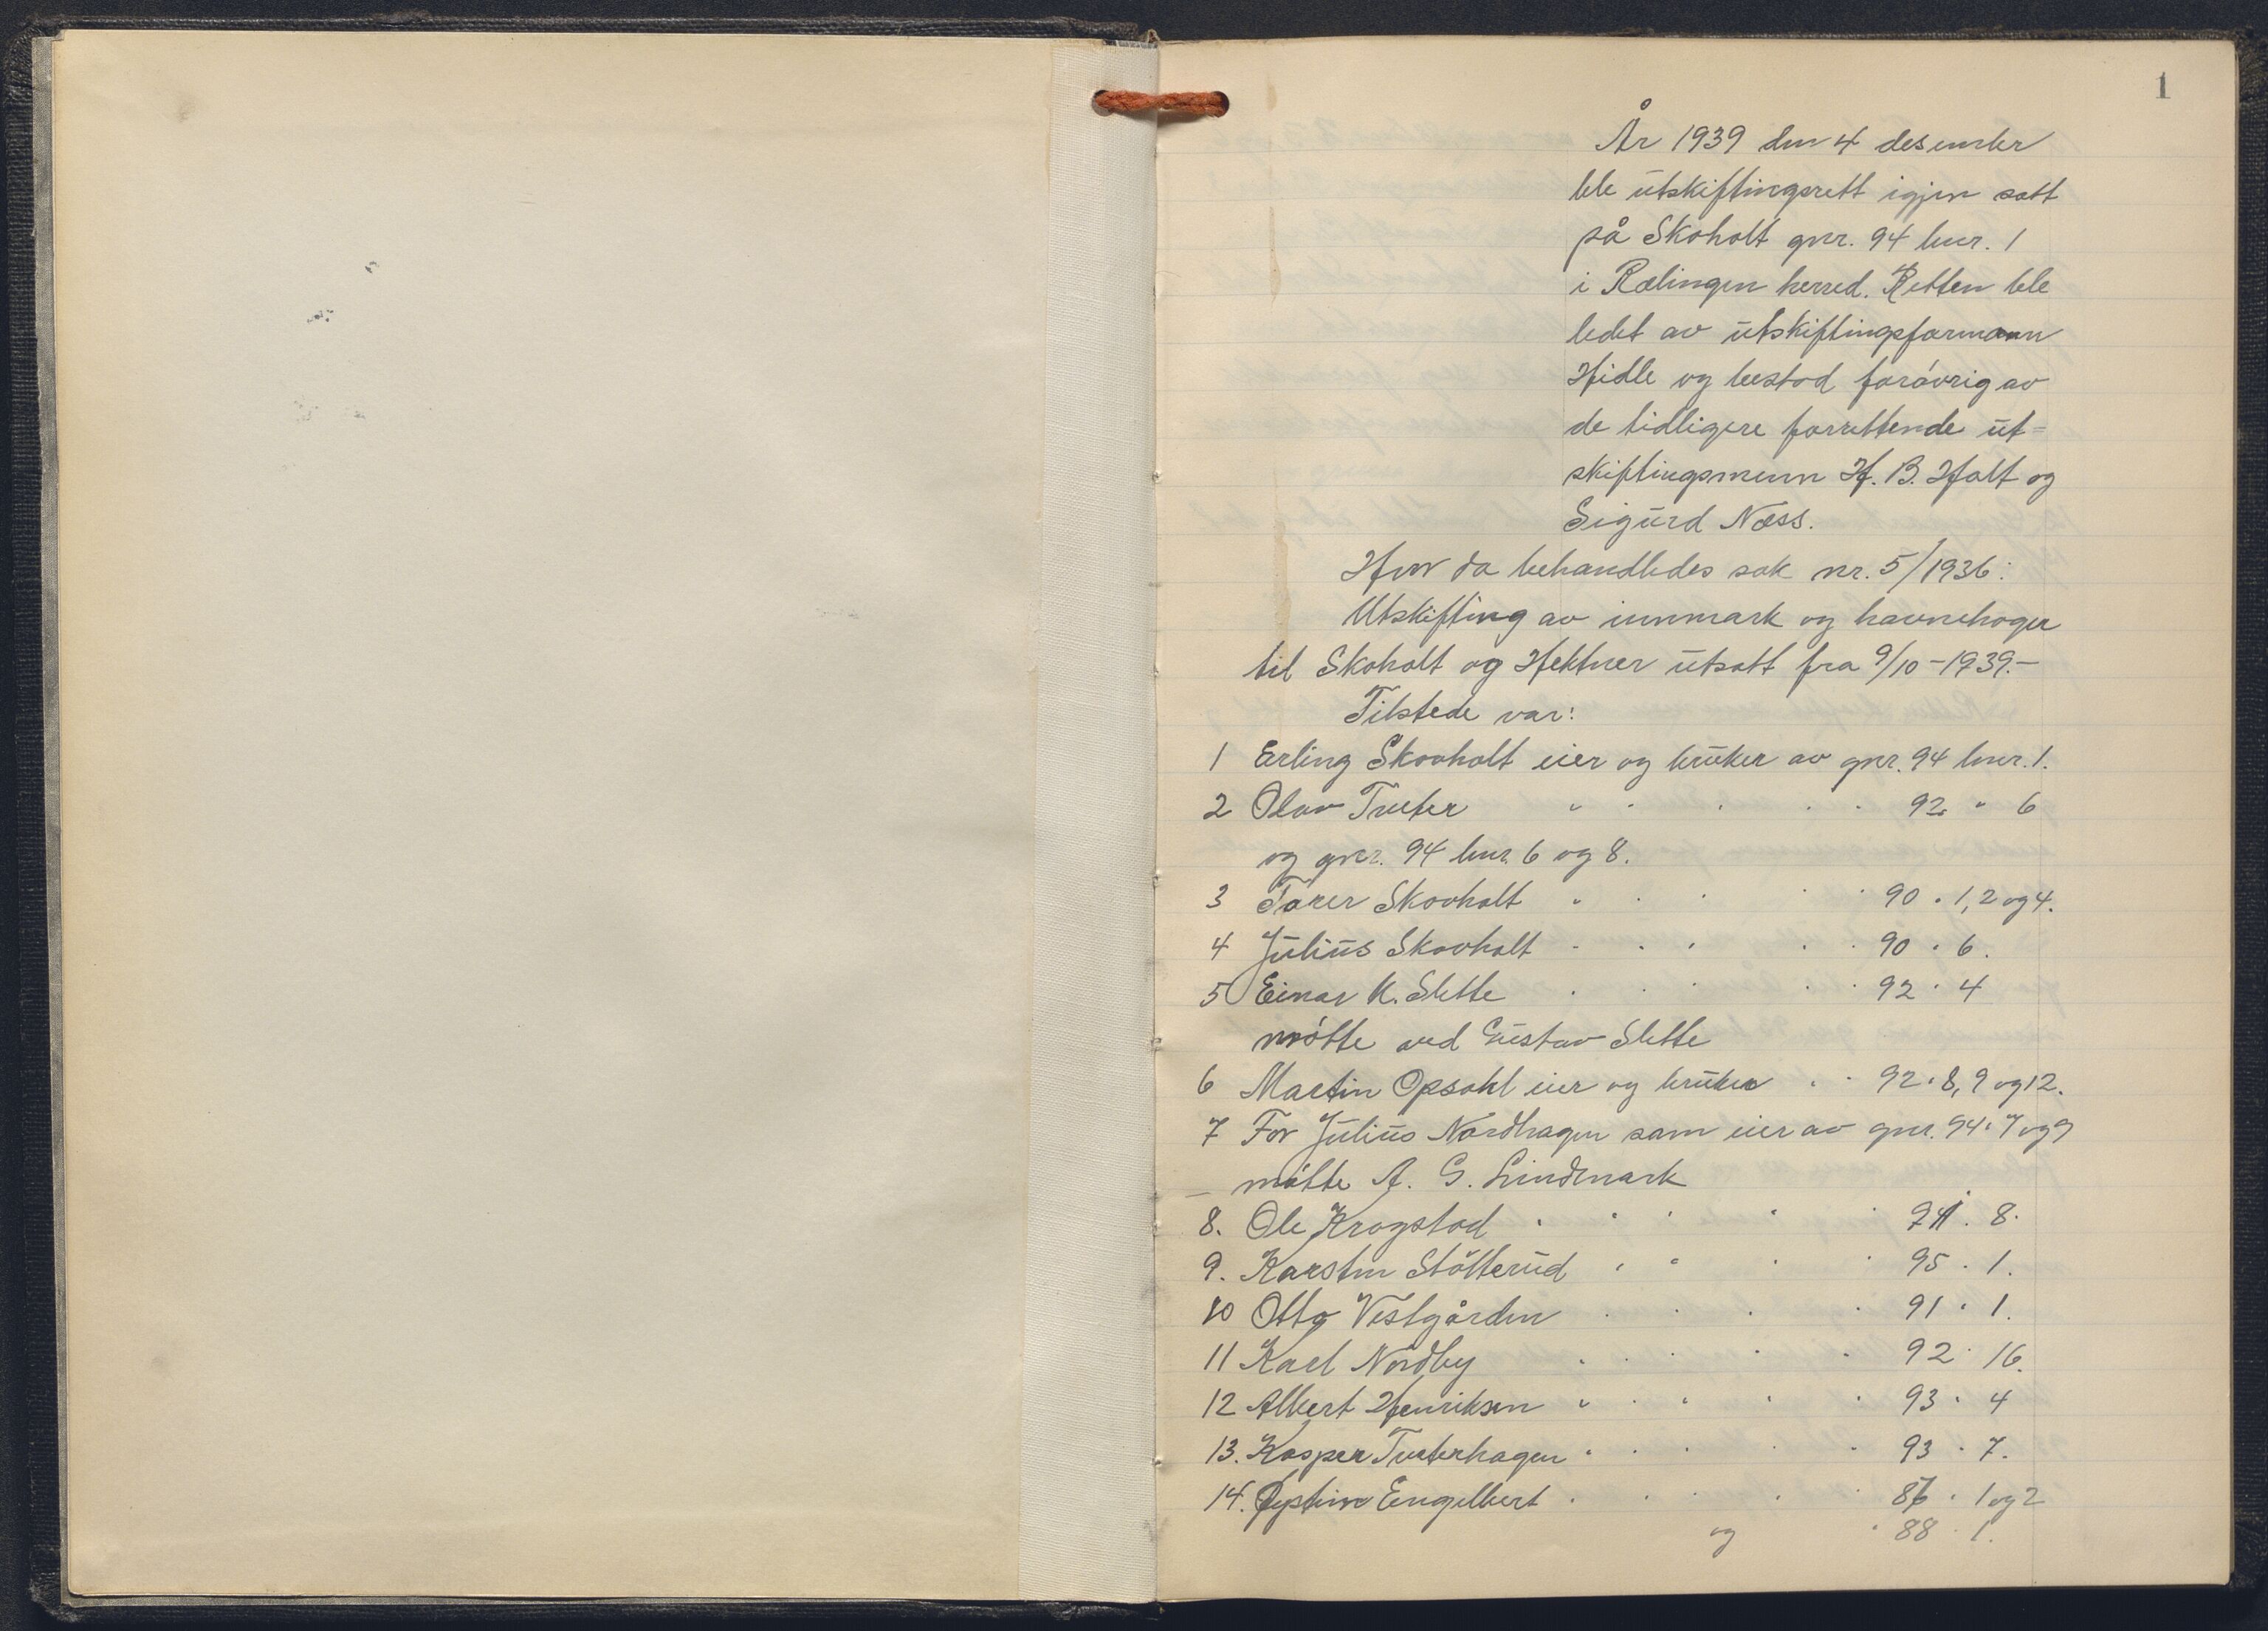 1
År 1939 den 4 desember
ble utskiftingsrett igjen satt
på Skoholt gnr. 94 bnr. 1
i Rælingen herred. Retten ble
ledet av utskiftingsformann
Hidle og bestod forøvrig av
de tidligere forrettende ut=
skiftingsmenn H. B. Holt og
Sigurd Næss.
Hvor da behandledes sak nr. 5/1936:
Utskifting av innmark og havnehager
til Skoholt og Hektner utsatt fra 9/10-1939.-
Tilstede var:
1 Erling Skovholt eier og bruker av gnr. 94 bnr. 1.
2 Olav Tveter " " " " " 92 " 6
og gnr. 94 bnr. 6 og 8.
3 Torer Skovholt " " " " " 90 " 1, 2 og 4.
4 Julius Skovholt " " " " " 90 " 6.
5 Einar K. Slette " " " " " 92 " 4
møtte ved Gustav Slette
6 Martin Opsahl eier og bruker " " 92 " 8, 9 og 12.
7 For Julius Nordhagen som eier av gnr. 94 " 7 og 9
møtte A. G. Lindmark
8. Ole Krogstad " " " " " 8.
9. Karsten Støtterud " " " " 95 " 1.
10 Otto Vestgården " " " " 91 " 1.
11 Karl Nordby " " " " " 92 " 16.
12 Albert Henriksen " " " " " 93 " 4
13. Kasper Tveterhagen " " " " " 93 " 7.
14. Øystein Engelbert " " " " " 86 " 1 og 2
og " 88 " 1.